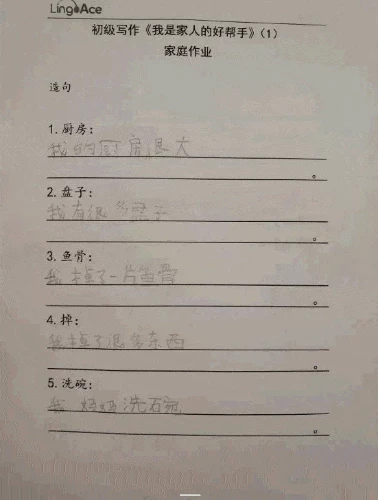 LingoAce
初级写作《我是家人的好帮手》(1)
家庭作业
造句
1.厨房:
我的厨房很大
。
2.盘子:
我有很多盘子
。
3.鱼骨:
我掉了一片鱼骨
。
4.掉:
我掉了很多东西
。
5.洗碗:
我 妈妈洗碗
。